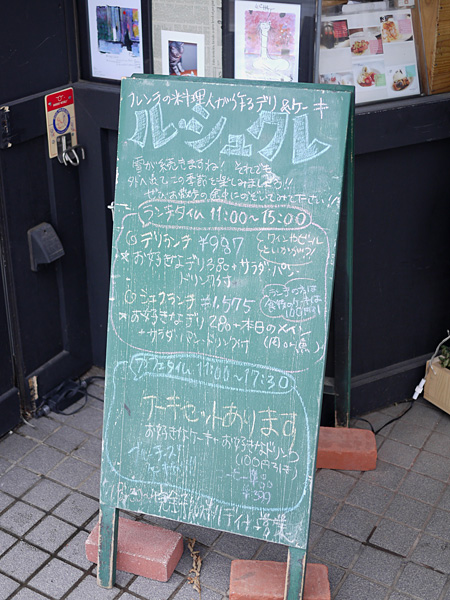 フレンチの料理人が作るデリ&ケーキ
ル・シュクレ
雪が続きますね! それでも
外へ出てこの季節を楽しみましょう!!
ぜひお散歩の途中にのぞいてみて下さい!!
ランチタイム 11:00～15:00
デリランチ ¥987
★お好きなデリ3品+サラダ・パン
ドリンク付
ワインやビール
といかがっ!
シェフランチ ¥1,575
お好きなデリ2品+本日のメイン
+サラダ・パン・ドリンク付
(肉or魚)
ランチの方は
100円引き
カフェタイム 11:00～17:30
ケーキセットあります
お好きなケーキ+お好きなドリンク
100円引き
営業